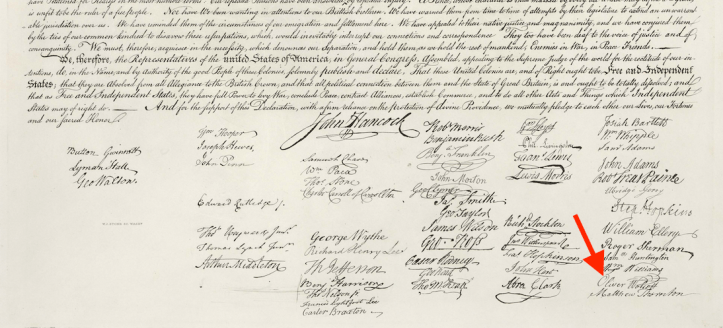 be wanting in attentions to our Brittish brethren. We have warned them from time to time of attempts by their legislature to extend an unwarrant-
able jurisdiction over us. We have reminded them of the circumstances of our emigration and settlement here. We have appealed to their native justice and magnanimity, and we have conjured them
by the ties of our common kindred to disavow these usurpations, which, would inevitably interrupt our connections and correspondence. They too have been deaf to the voice of justice and of
consanguinity. We must, therefore, acquiesce in the necessity, which denounces our Separation, and hold them, as we hold the rest of mankind, Enemies in War, in Peace Friends.
We, therefore, the Representatives of the united States of America, in General Congress, Assembled, appealing to the Supreme Judge of the world for the rectitude of our in-
tentions, do, in the Name, and by Authority of the good People of these Colonies, solemnly publish and declare, That these United Colonies are, and of Right ought to be Free and Independent
States; that they are Absolved from all Allegiance to the British Crown, and that all political connection between them and the State of Great Britain, is and ought to be totally dissolved; and
that as Free and Independent States, they have full Power to levy War, conclude Peace, contract Alliances, establish Commerce, and to do all other Acts and Things which Independent
States may of right do. And for the support of this Declaration, with a firm reliance on the protection of divine Providence, we mutually pledge to each other our Lives, our Fortunes
and our sacred Honor.
Button Gwinnett
Lyman Hall
Geo Walton.
Wm Hooper
Joseph Hewes,
John Penn
Edward Rutledge
Thos Heyward Junr.
Thomas Lynch Junr.
Arthur Middleton
John Hancock
Samuel Chase
Wm Paca
Thos Stone
Charles Carroll of Carrollton
George Wythe
Richard Henry Lee
Th Jefferson
Benj Harrison
Thos Nelson jr.
Francis Lightfoot Lee
Carter Braxton
Robt Morris
Benjamin Rush
Benj. Franklin
John Morton
Geo Clymer
Jas. Smith
Geo. Taylor
James Wilson
Geo. Ross
Caesar Rodney
Geo Read
Tho M:Kean
Wm Floyd
Phil. Livingston
Frans. Lewis
Lewis Morris
Richd. Stockton
Jno Witherspoon
Fras. Hopkinson
John Hart
Abra Clark
Josiah Bartlett
Wm. Whipple
Saml Adams
John Adams
Robt Treat Paine
Elbridge Gerry
Step. Hopkins
William Ellery
Roger Sherman
Saml. Huntington
Wm. Williams
Oliver Wolcott
Matthew Thornton